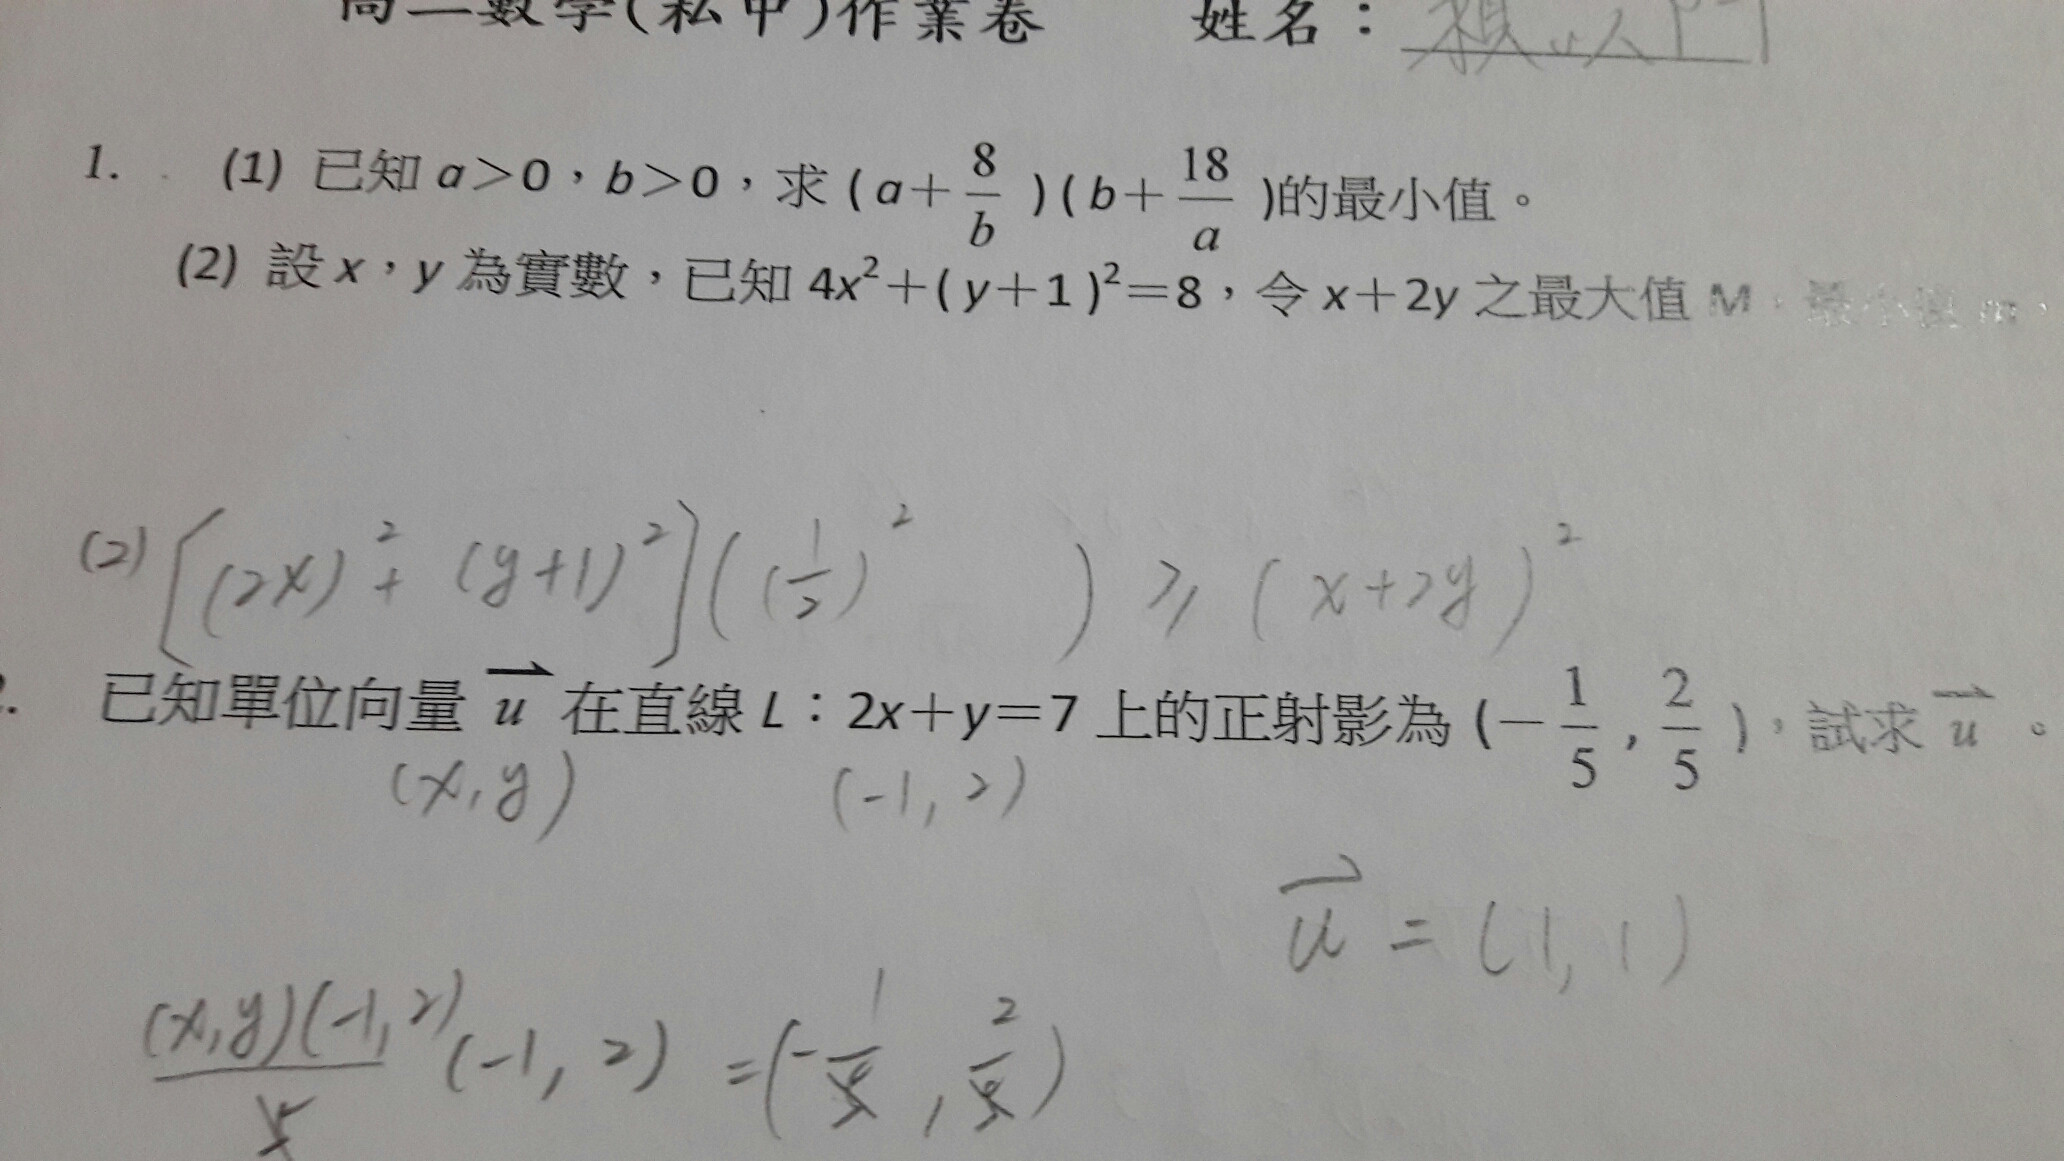 高二數學(私中)作業卷 姓名：賴以門
1. (1) 已知 a＞0，b＞0，求 ( a＋8/b )( b＋18/a )的最小值。
(2) 設 x，y 為實數，已知 4x²＋( y＋1 )²＝8，令 x＋2y 之最大值 M，最小值 m，
(2) [(2x)² + (y+1)²]((1/2)² ) ≥ (x+2y)²
已知單位向量 u⃗ 在直線 L：2x＋y＝7 上的正射影為 (－1/5 , 2/5 )，試求 u⃗。
(x,y) (-1,2)
u⃗ = (1,1)
(x,y)(-1,2)/5 (-1,2) = (-1/5, 2/5)